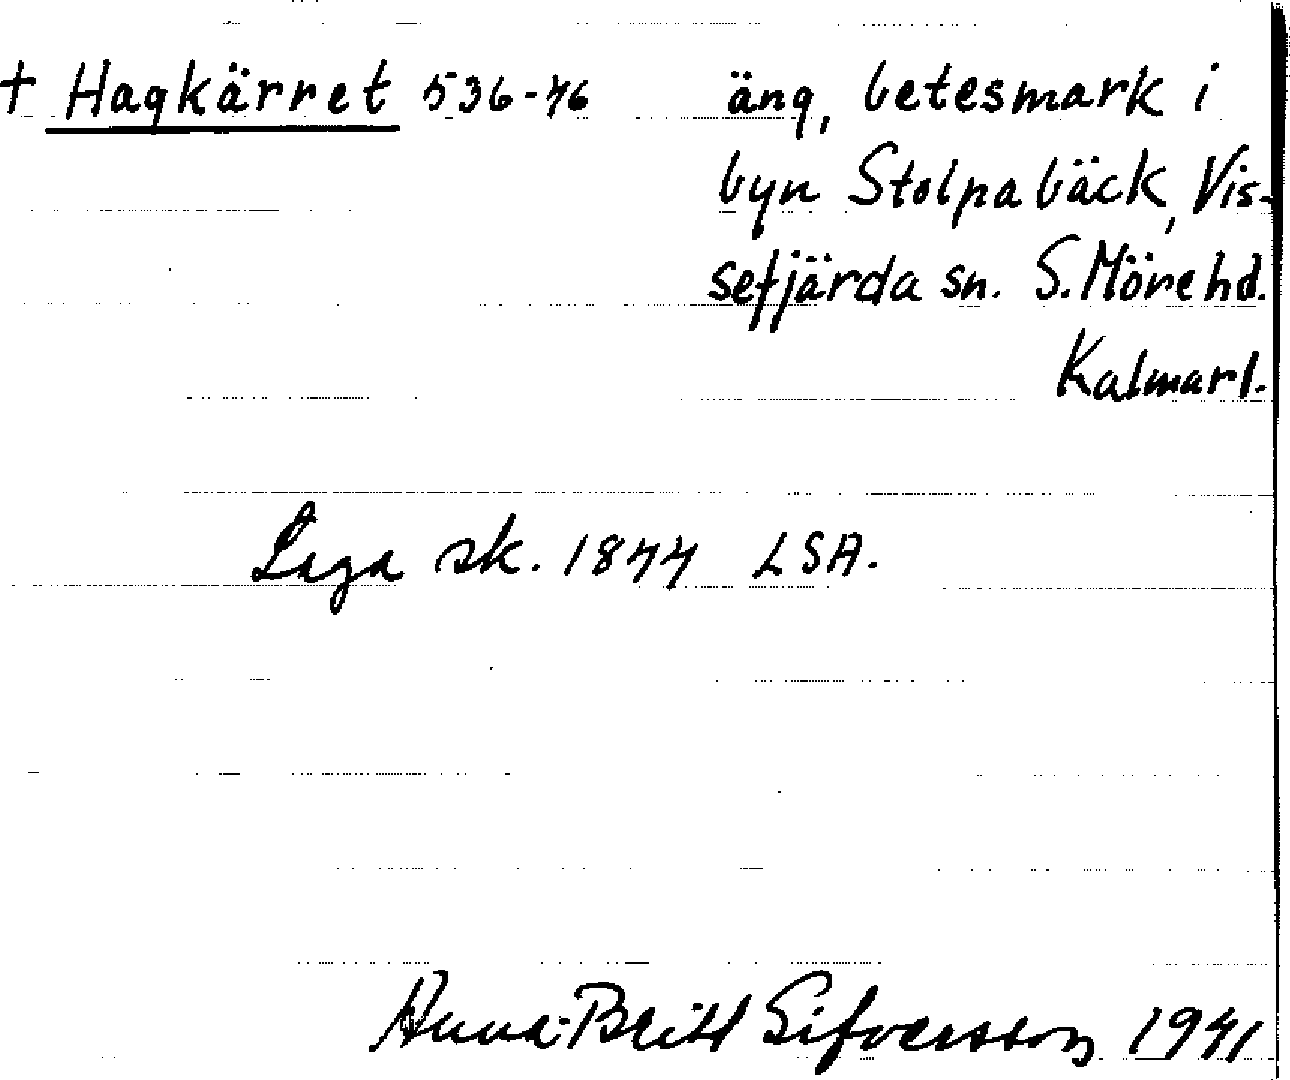 † Hagkärret 536-46 äng, betesmark i
byn Stolpabäck, Vis-
sefjärda sn. S. Möre hd.
Kalmar l.
Laga sk. 1844 LSA.
Anna-Britt Sifversson 1941